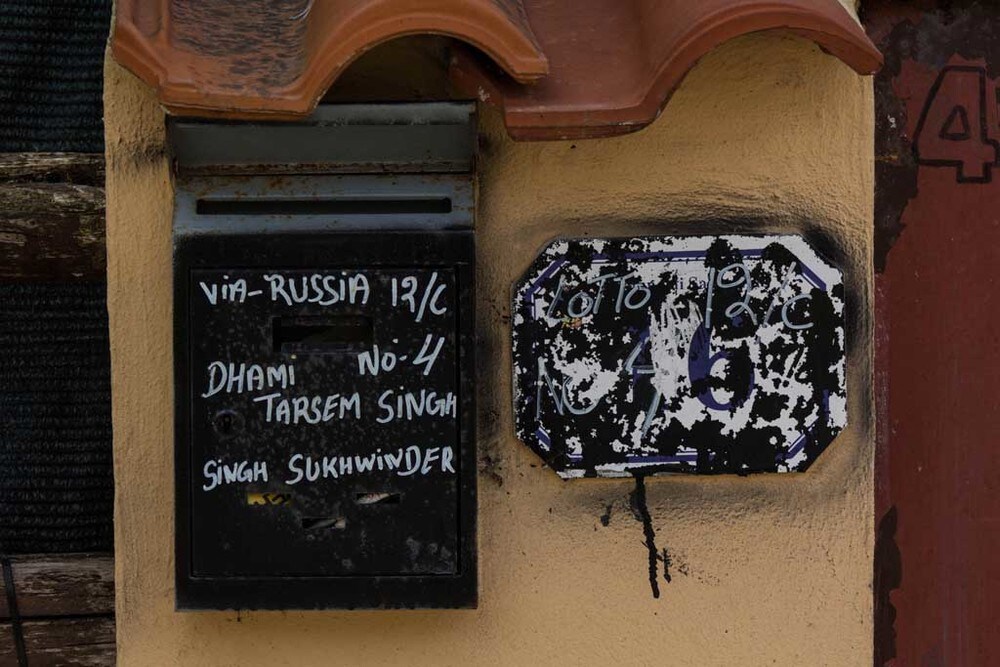 VIA-RUSSIA 12/C
NO-4
DHAMI
TARSEM SINGH
SINGH SUKHWINDER
LOTTO 12/C
NO 4
6
4